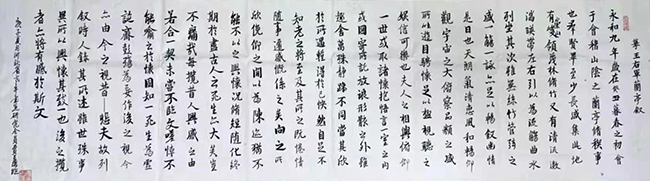 王右軍蘭亭敘
永和九年歲在癸丑暮春之初會
于會稽山陰之蘭亭修稧事
也羣賢畢至少長咸集此地
有崇山峻領茂林脩竹又有清流激
湍暎帶左右引以為流觴曲水
列坐其次雖無絲竹管弦之
盛一觴一詠亦足以暢敘幽情
是日也天朗氣清惠風和暢仰
觀宇宙之大俯察品類之盛
所以遊目騁懷足以極視聽之
娛信可樂也夫人之相與俯仰
一世或取諸懷抱悟言一室之內
或因寄所託放浪形骸之外雖
趣舍萬殊靜躁不同當其欣
於所遇暫得於己快然自足不
知老之將至及其所之既惓情
隨事遷感慨係之矣向之所
欣俛仰之間以為陳迹猶不
能不以之興懷況脩短隨化終
期於盡古人云死生亦大矣豈
不痛哉每攬昔人興感之由
若合一契未嘗不臨文嗟悼不
能喻之於懷固知一死生為虛
誕齊彭殤為妄作後之視今
亦由今之視昔悲夫故列
敘時人錄其所述雖世殊事
異所以興懷其致一也後之攬
者亦將有感於斯文